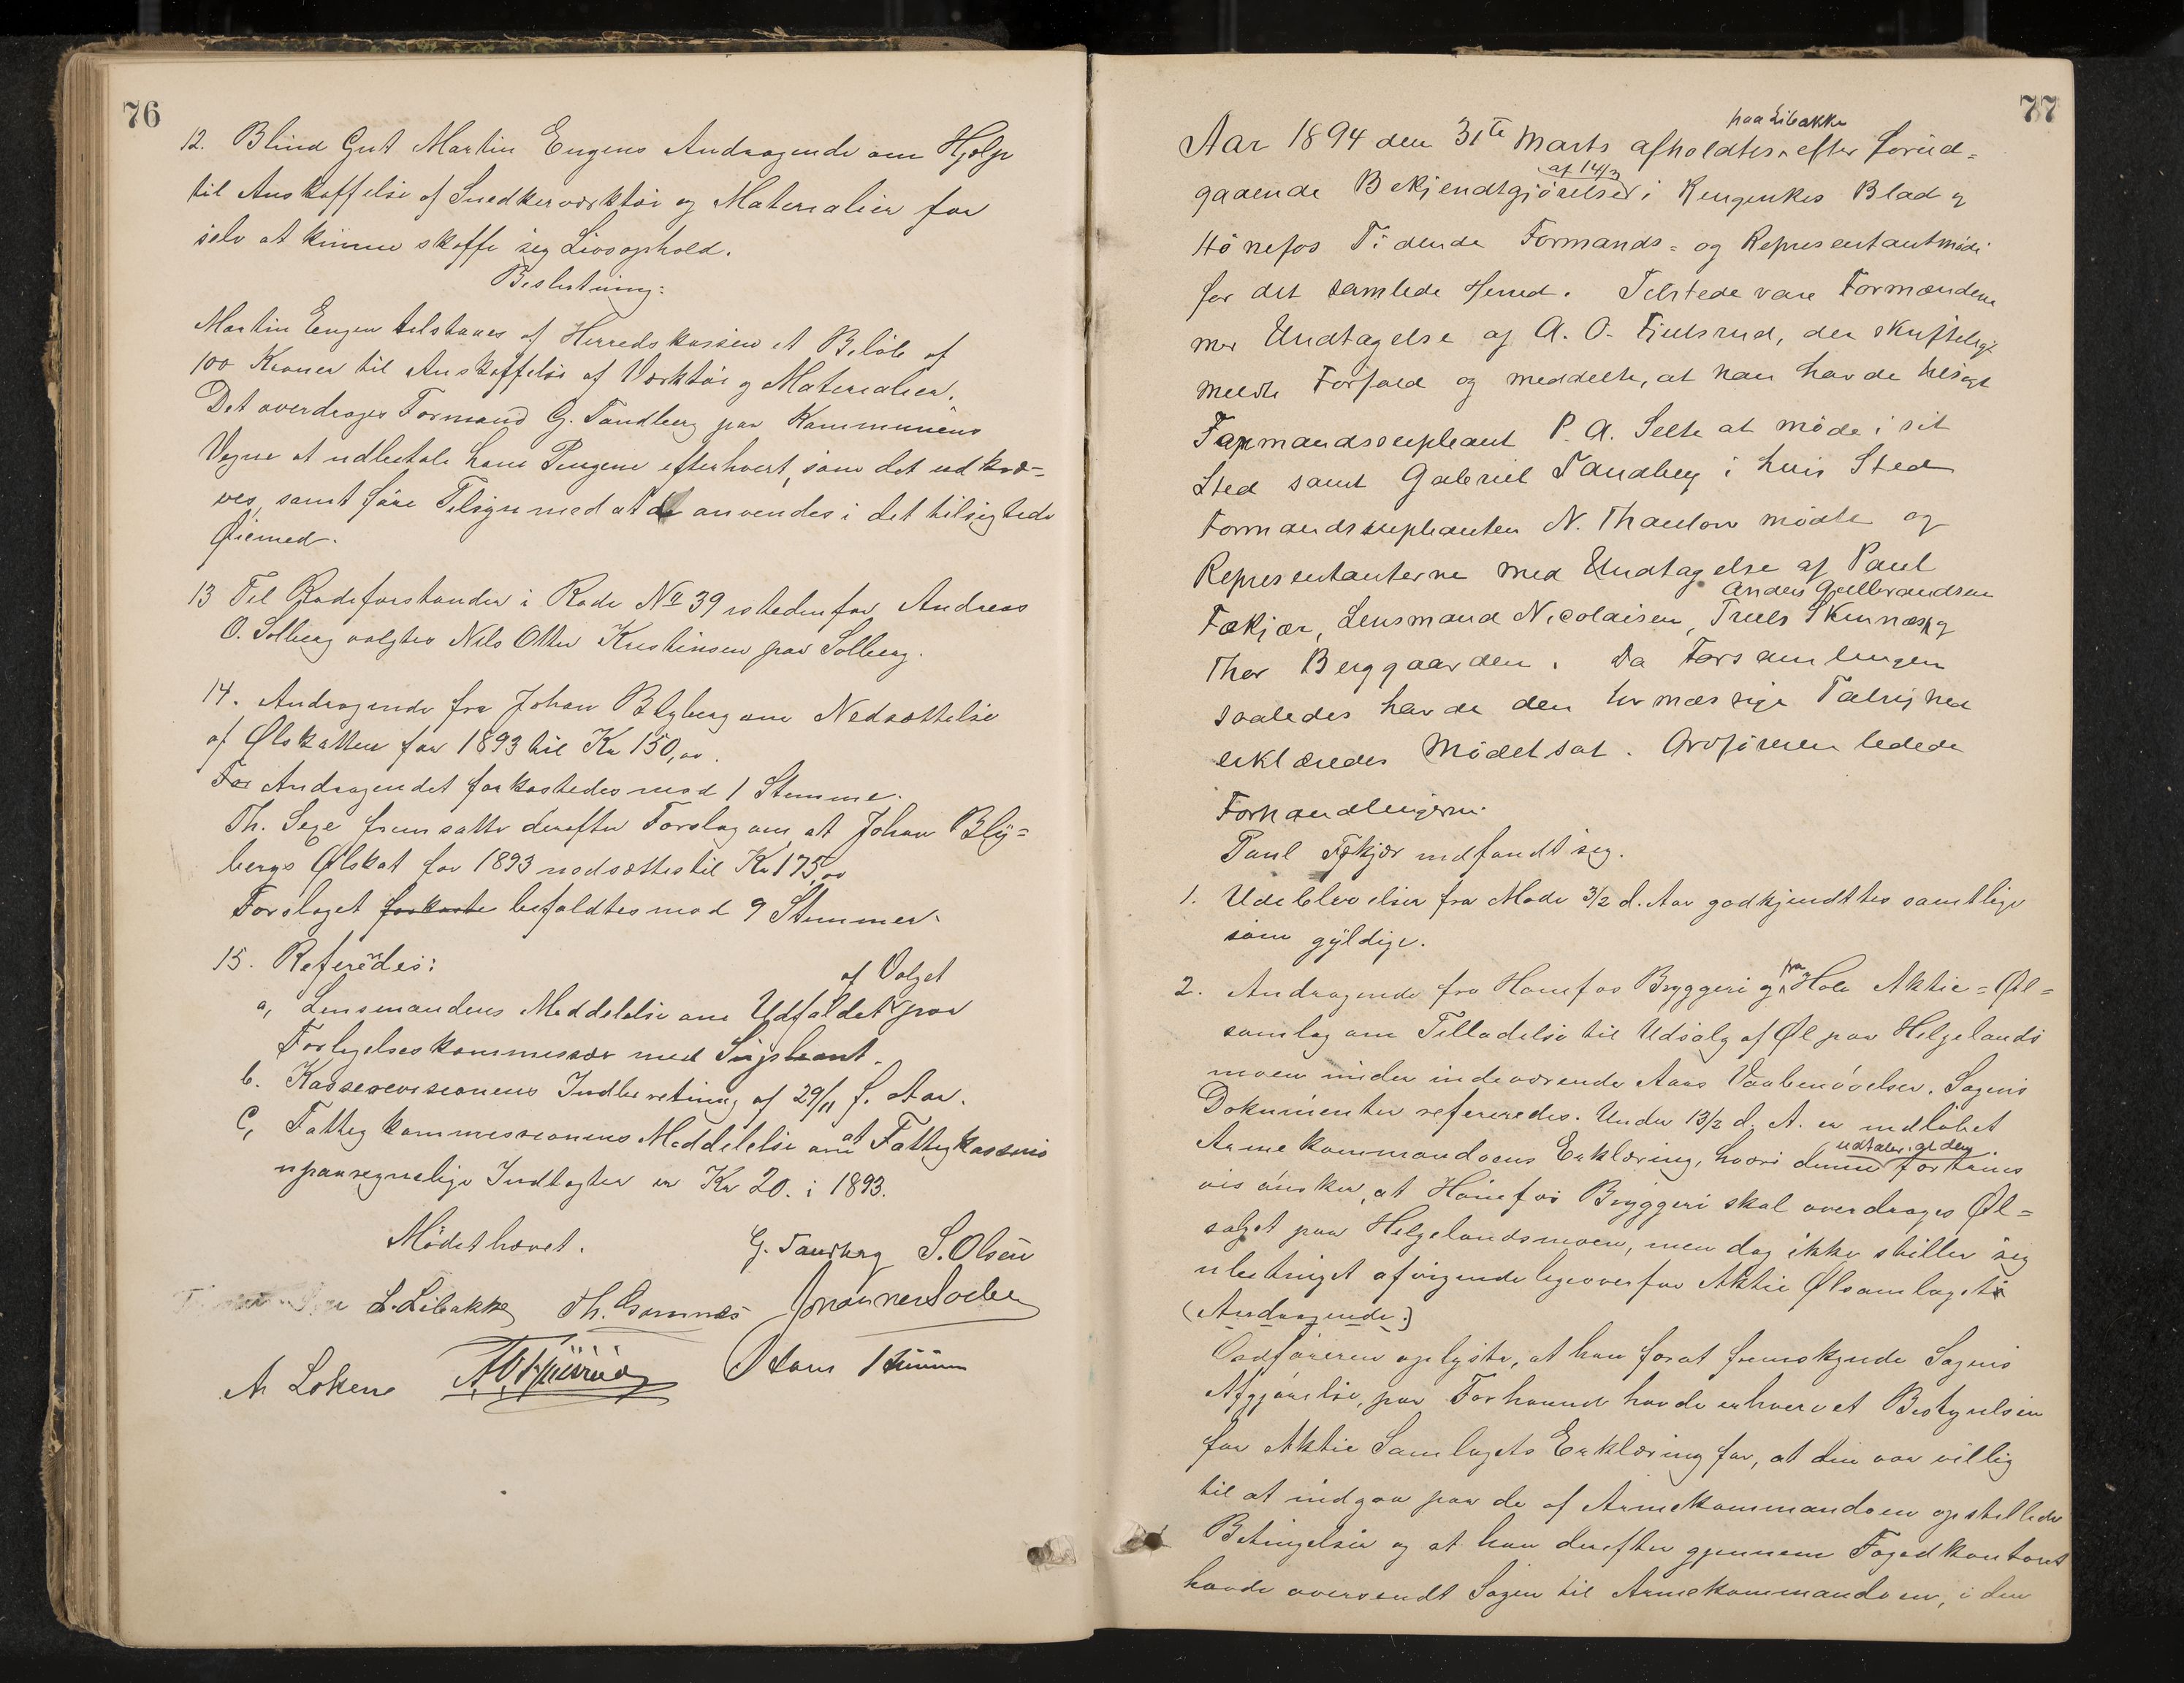 76
12. Blind Gut Martin Engens Andragende om Hjælp
til Anskaffelse af Snedkerværktøi og Materialier for
selv at kunne skaffe sig Livsophold.
Beslutning:
Martin Engen tilstaaes af Herredskassen et Beløb af
100 Kroner til Anskaffelse af Værktøi og Materialier.
Det overdrages Formand G. Tandberg paa Kommunens
Vegne at udbetale ham Pengene efterhvert, som det udkræ-
ves, samt føre Tilsyn med at de anvendes i det tilsigtede
Øiemed.
13 Til Rodeforstander i Rode No 39 istedenfor Andreas
O. Solberg valgtes Nils Otter Kristinsen paa Solberg.
14. Andragende fra Johan Blyberg om Nedsættelse
af Ølskatten for 1893 til Kr 150,00.
For Andragendet forkastedes mod 1 Stemme.
Th. Sexe fremsatte derefter Forslag om, at Johan Bly=
bergs Ølskat for 1893 nedsættes til Kr 175,00
Forslaget forkaste bifaldtes mod 9 Stemmer.
15. Refereredes:
af Valget
a, Lensmandens Meddelelse om Udfaldet paa
Forligelseskommissær med Supleant.
b. Kasserevisionens Indberetning af 29/11 f. Aar.
c, Fattigkommissionens Meddelelse om at Fattigkassens
upaaregnelige Indtægter er Kr 20. i 1893.
Mødet hævet.
G. Tandberg S. Olsen
L. Libakke Th. Gomnæs Johannes Soelberg
A Løkene
77
paa Libakke
Aar 1894 den 31te Marts afholdtes efter forud=
af 14/3
gaaende Bekjendtgjørelser i Ringerikes Blad og
Hønefos Tidende Formands= og Representantmøde
for det samlede Herred. Tilstede vare Formændene
med Undtagelse af A. O. Fjeldsrud, der skriftelig
meldte Forfald og meddelte, at han havde tilsagt
Formandssupleant P. A. Selte at møde i sit
Sted samt Gabriel Tandberg i hvis Sted
Formandssupleanten N. Thaulow mødte og
Representanterne med Undtagelse af Paul
Anders Gulbrandsen
Fækjær, Lensmand Nicolaisen, Truls Skinnæs og
Thor Berggaarden. Da Forsamlingen
saaledes havde den lovmæssige Talrighed
erklæredes Mødet sat. Ordføreren ledede
Forhandlingerne.
Paul Fækjær indfandt sig.
1. Udeblevelser fra Møde 3/2 d. Aar godkjendttes samtlige
som gyldige.
fra
2. Andragende fra Hønefos Bryggeri og Hole Aktie=Øl=
samlag om Tilladelse til Udsalg af Øl paa Helgelands
moen under indeværende Aars Vaabenøvelser. Sagens
Dokumenter refereredes. Under 13/2 d. A. er indløbet
udtaler, at den
Armekommandoens Erklæring, hvori denne fortrins
vis ønsker, at Hønefos Bryggeri skal overdrages Øl=
salget paa Helgelandsmoen, men dog ikke stiller sig
ubetinget afvigende ligeoverfor Aktie Ølsamlagets
(Andragende.)
Ordføreren oplyste, at han forat fremskynde Sagens
Afgjørelse, paa Forhaand havde erhvervet Bestyrelsen
for Aktie Samlagets Erklæring for, at den var villig
til at indgaa paa de af Armekommandoen opstillede
Betingelser og at han derefter gjennem Fogedkontoret
havde oversendt Sagen til Armekommandoen, i den